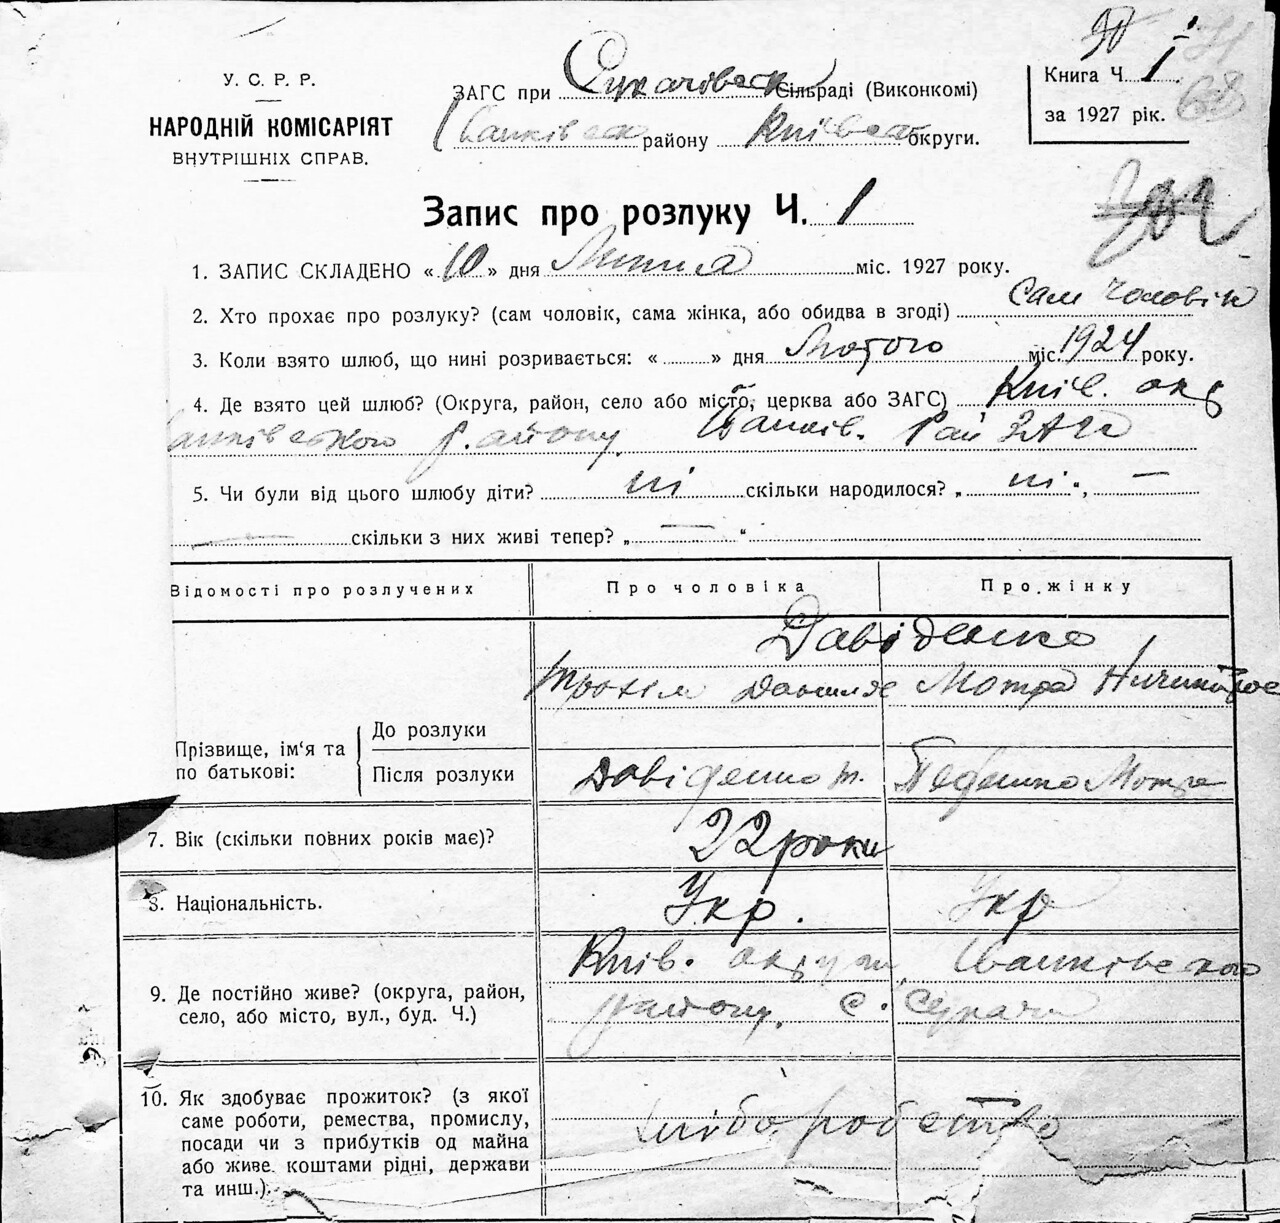 У. С. Р. Р.
НАРОДНІЙ КОМІСАРІЯТ
ВНУТРІШНІХ СПРАВ.
ЗАГС при Сукачівськ Сільраді (Виконкомі)
Іванківськ району Київськ округи.
Книга Ч. 1
за 1927 рік.
68
Запис про розлуку Ч. 1
1. ЗАПИС СКЛАДЕНО «10» дня Липня міс. 1927 року.
2. Хто прохає про розлуку? (сам чоловік, сама жінка, або обидва в згоді) сам чоловік
3. Коли взято шлюб, що нині розривається: « » дня Лютого міс. 1924 року.
4. Де взято цей шлюб? (Округа, район, село або місто, церква або ЗАГС) Київ. окр
Іванківського району Іванків. Рай ЗАГС
5. Чи були від цього шлюбу діти? ні скільки народилося? „ ні “, —
— скільки з них живі тепер? „ — “
Відомості про розлучених Про чоловіка Про жінку
Давіденко
Трохим Данилов Мотря
Прізвище, ім'я та по батькові:
До розлуки
Після розлуки Давіденко т. Мотря
7. Вік (скільки повних років має)? 22 роки
8. Національність. Укр. Укр
9. Де постійно живе? (округа, район, село, або місто, вул., буд. Ч.)
Київ. округи, Іванківського
району, с. Сукачі
10. Як здобуває прожиток? (з якої
саме роботи, ремества, промислу,
посади чи з прибутків од майна
або живе коштами рідні, держави
та инш.). хліборобство